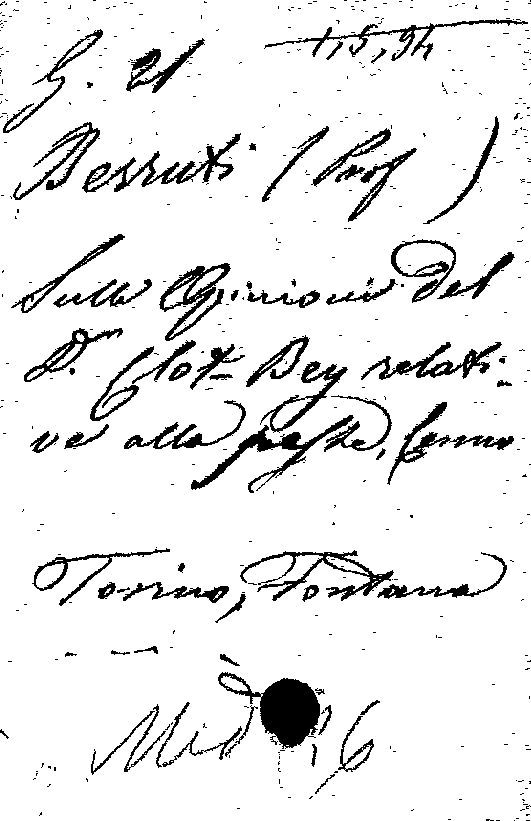 G. 21
1,5,94
Berruti (Prof)
Sulle Opinioni del
Dr. Clot-Bey relati-
ve alla peste, Cenno
Torino, Fontana
Med 26